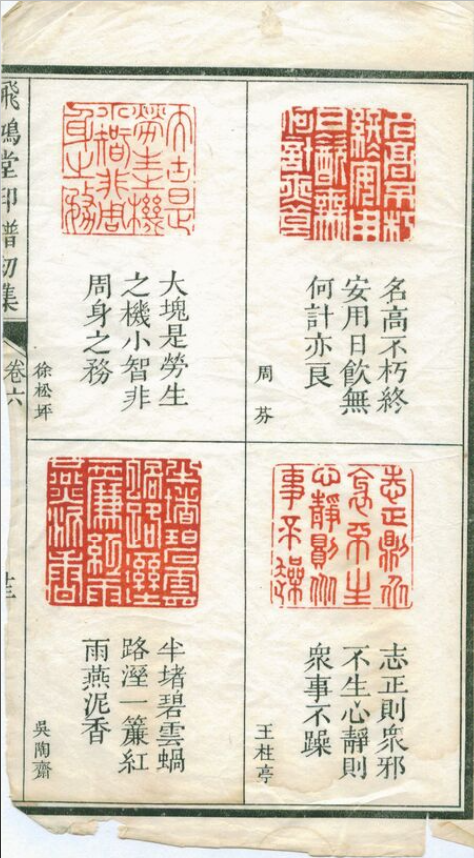 名高不朽終
安用日飲無
何計亦良
周芬
大塊是勞生
之機小智非
周身之務
徐松坪
志正則衆邪
不生心靜則
衆事不躁
王桂亭
半堵碧雲蝸
路溼一簾紅
雨燕泥香
吳陶齋
飛鴻堂印譜初集
卷六